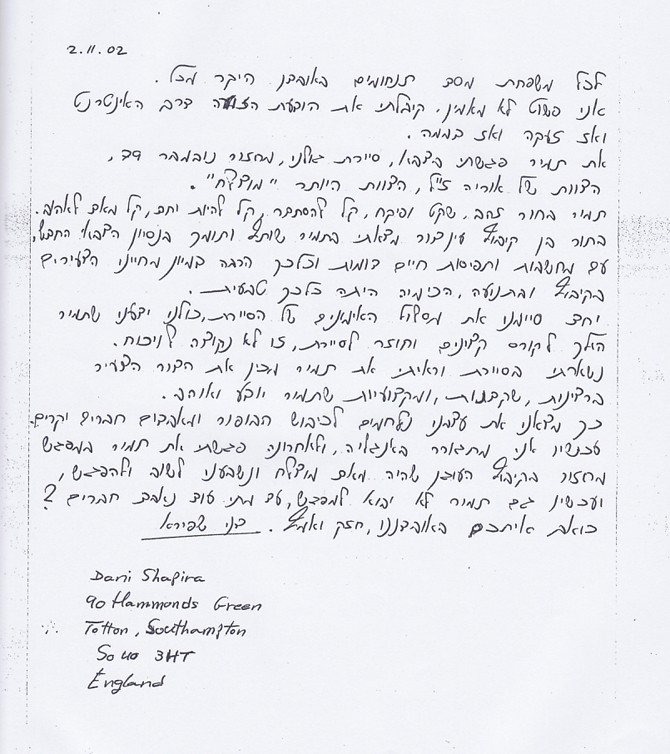 2.11.02
לכל משפחת מסד תנחומים באובדן היקר מכל.
אני פשוט לא מאמין. קיבלתי את הודעת הזוועה דרך האינטרנט
ואז זעקה ואז בממה.
את תמיר פגשתי בצבא, סיירת גולני, מחזור נובמבר 79,
הצוות של אוריה ז"ל, הצוות היותר "מוצלח".
תמיר בחור זהב, שקט ופיקח, קל להסתדר, קל להיות יחד, קל מאד לאהוב.
בחור בן קיבוץ עין צור מצאתי בתמיר שותף ותומך בנסיון הצבאי החדש,
עם מחשבות ותפיסות חיים דומות וכל כך הרבה במיון מחיינו הצעירים
בקיבוץ ובתנועה, הכימיה היתה כל כך טבעית.
יחד סיימנו את מסלול האימונים של הסיירת, כולנו ידענו שתמיר
הולך לקורס קצינים וחוזר לסיירת, זו לא נקודה לויכוח.
נשארתי בסיירת וראיתי את תמיר מכין את הדור הצעיר
ברצינות, שקדנות, ומקצועיות שתמיר יודע ואוהב.
כך מצאנו את עצמנו נלחמים לכיבוש הבופור ומאבדים חברים יקרים.
עכשיו אני מתגורר באנגליה, ולאחרונה פגשתי את תמיר במפגש
מחזור בקיבוץ העוגן שהיה מאד מוצלח ונשבענו לשוב ולהפגש,
ועכשיו גם תמיר לא יבוא למפגש, עד מתי עוד נאבד חברים?
כואב איתכם באובדננו, חזק ואמץ. דני שפירא
Dani Shapira
90 Hammonds Green
Totton, Southampton
So40 3HT
England